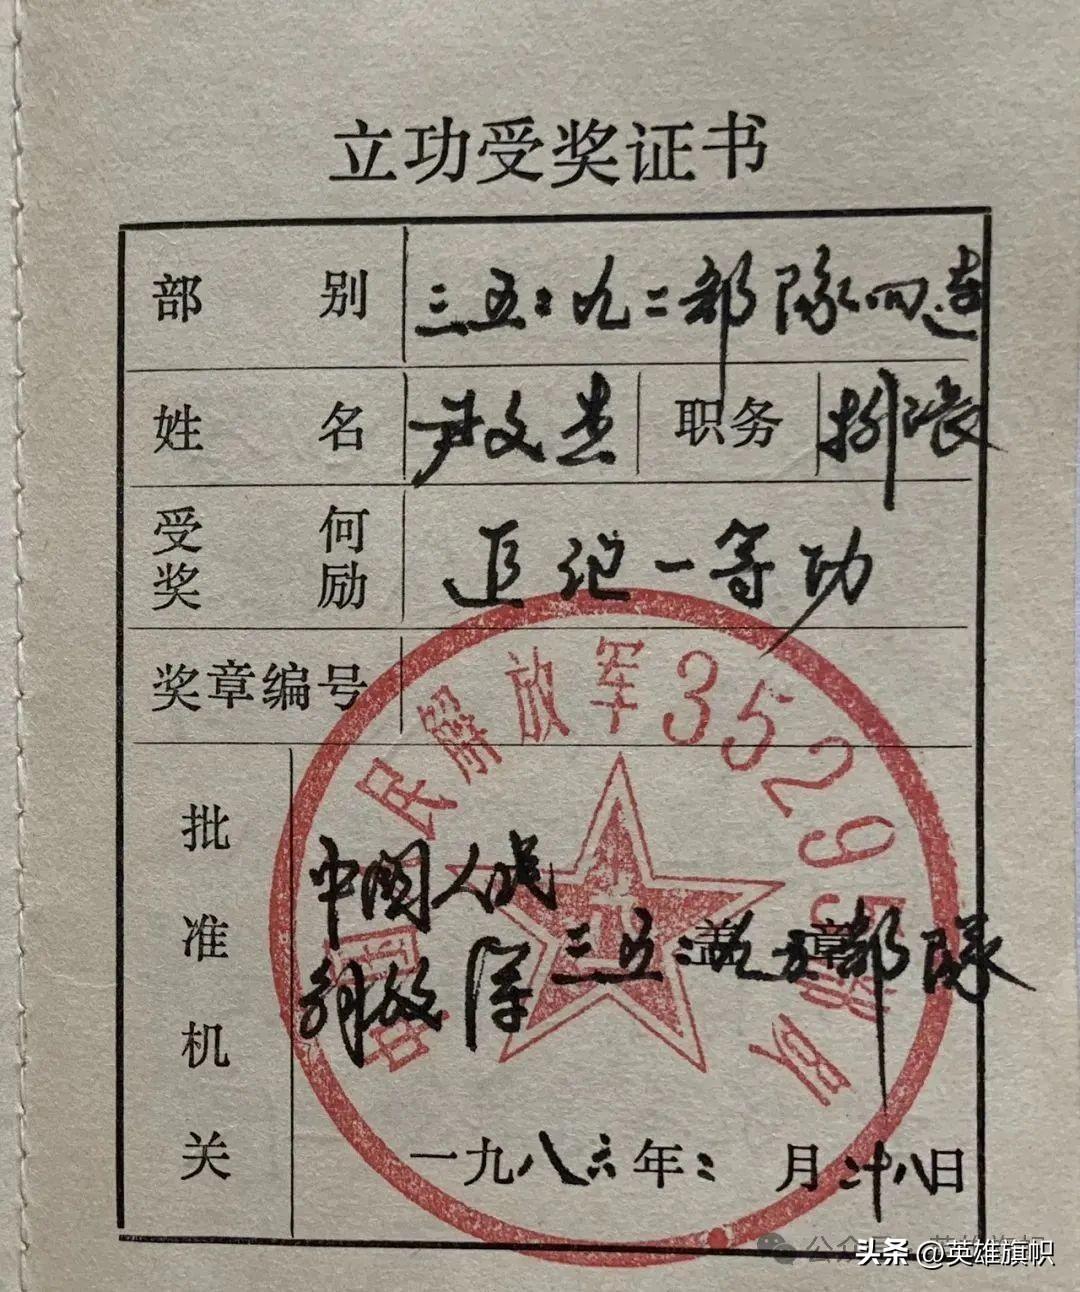 立功受奖证书
部别 三五二九二部队四连
姓名 尹文杰 职务 排长
受何奖励 追记一等功
奖章编号
批准机关
中国人民
解放军三五二九五部队
盖章
中国人民解放军35295部队
一九八六年二月二十八日
公众号
头条 @英雄旗帜